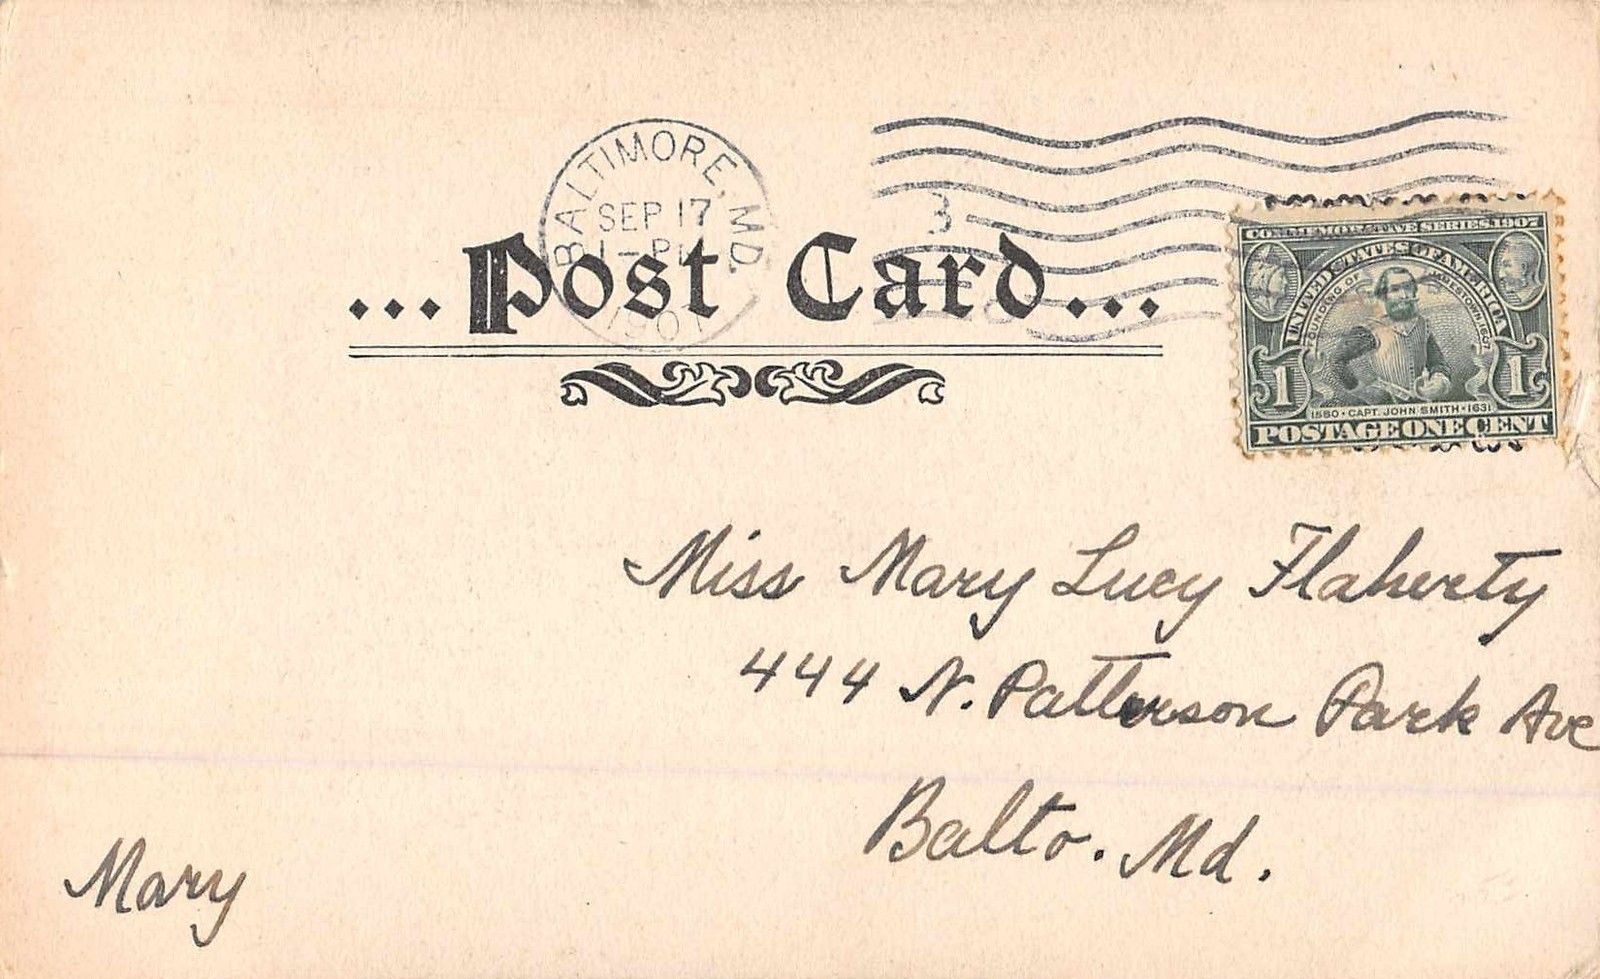 BALTIMORE, MD.
SEP 17
1907
3
...Post Card...
COMMEMORATIVE SERIES 1907
UNITED STATES OF AMERICA
FOUNDING OF JAMESTOWN 1607
1 1
1580 · CAPT. JOHN SMITH · 1631
POSTAGE ONE CENT
Miss Mary Lucy Flaherty
444 N. Patterson Park Ave
Balto. Md.
Mary